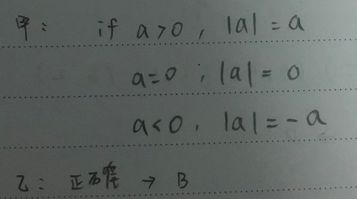 甲: if a>0, |a|=a
a=0; |a|=0
a<0, |a|=-a
乙: 正确 → B